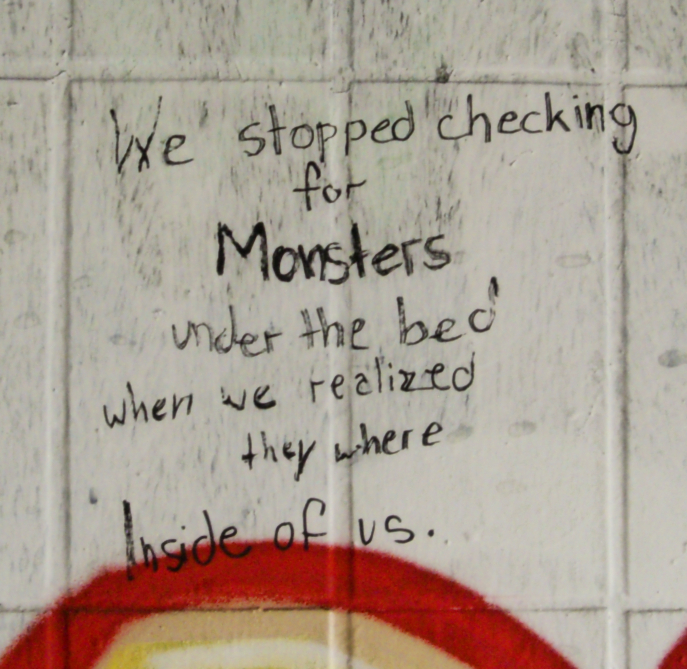 We stopped checking
for
Monsters
under the bed
when we realized
they where
Inside of us.